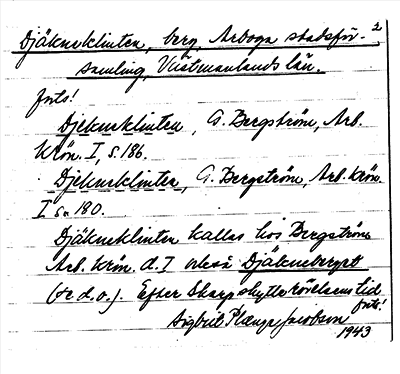 2
Djäkneklinten, berg, Arboga stadsför-
samling, Västmanlands län.
forts!
Djekneklinten, G. Bergström, Arb.
Krön. I, S. 186.
Djekneklinten, G. Bergström, Arb. krön.
I s. 180.
Djäkneklinten kallas hos Bergström
Arb. krön. d. I också Djäkneberget
(se d.o.). Efter Skarpskytterörelsens tid
forts!
Sigbrit Plænge Jacobson
1943